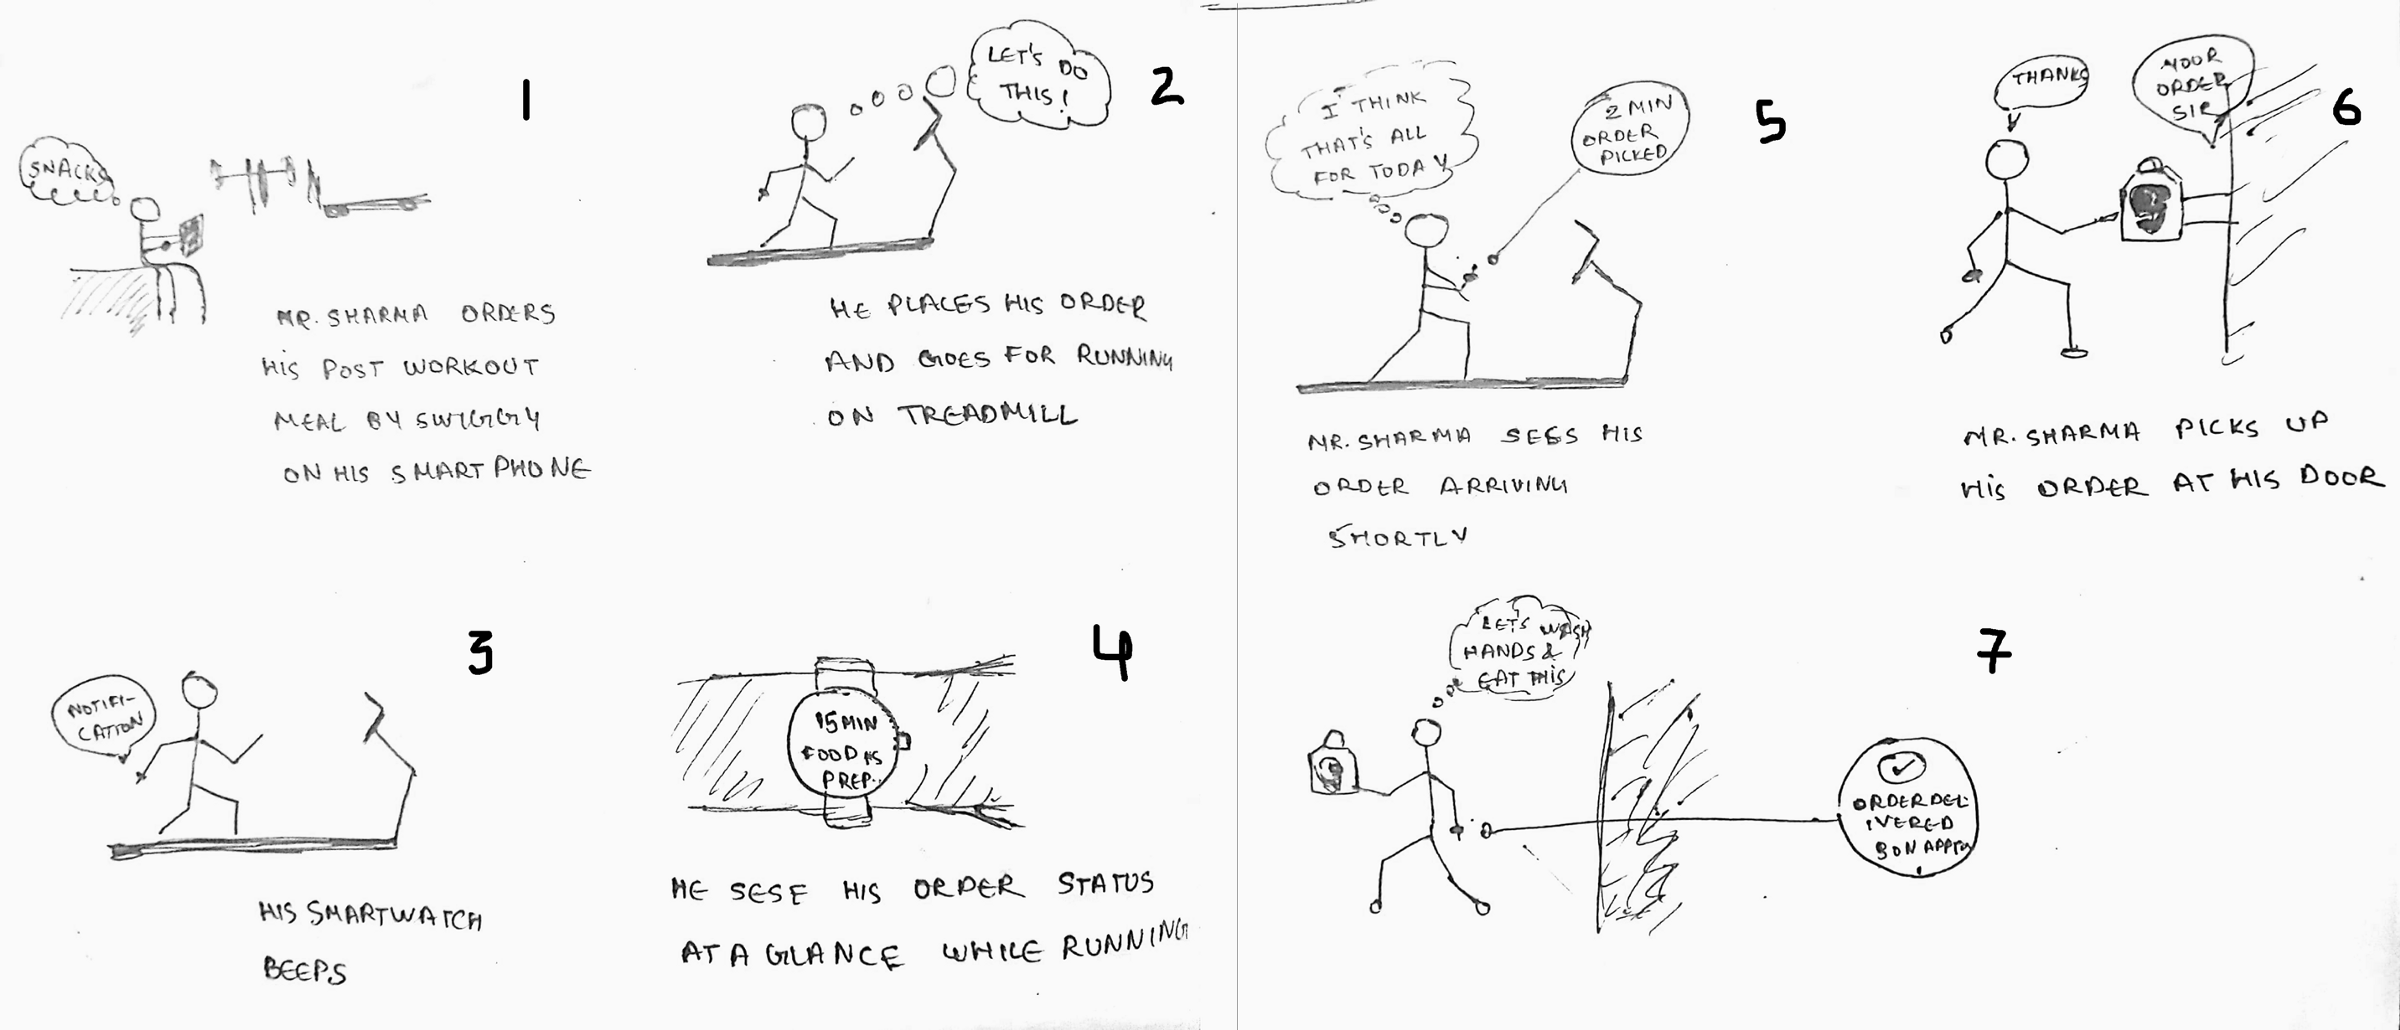 1
SNACKS
MR. SHARMA ORDERS
HIS POST WORKOUT
MEAL BY SWIGGY
ON HIS SMARTPHONE
2
LET'S DO
THIS!
HE PLACES HIS ORDER
AND GOES FOR RUNNING
ON TREADMILL
3
NOTIFI-
CATION
HIS SMARTWATCH
BEEPS
4
15 MIN
FOOD IS
PREP..
HE SESE HIS ORDER STATUS
AT A GLANCE WHILE RUNNING
5
I THINK
THAT'S ALL
FOR TODAY
2 MIN
ORDER
PICKED
MR. SHARMA SEES HIS
ORDER ARRIVING
SHORTLY
6
THANKS
YOUR
ORDER
SIR
MR. SHARMA PICKS UP
HIS ORDER AT HIS DOOR
7
LET'S WASH
HANDS &
EAT THIS
ORDER DEL-
IVERED
BON